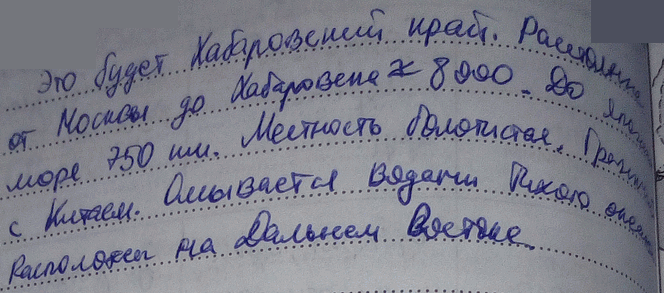 Это будет Хабаровский край. Расстояние
от Москвы до Хабаровска ≈ 8 900. До
море 750 км. Местность болотистая. Граничит
с Китаем. Омывается водами Тихого океана
Расположен на Дальнем Востоке.